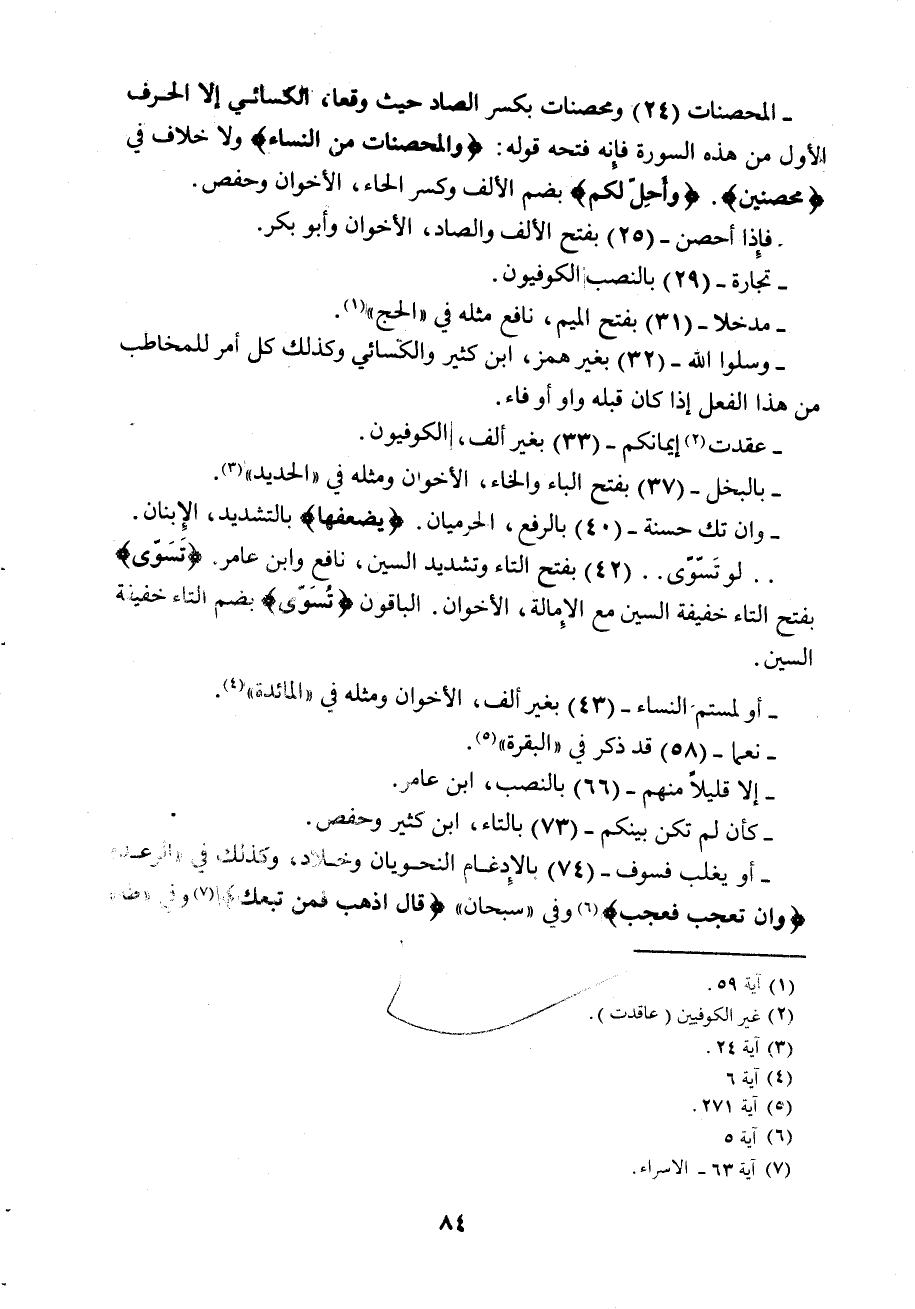 ـ المحصنات (٢٤) ومحصنات بكسر الصاد حيث وقعا، الكسائي إلا الحرف
الأول من هذه السورة فإنه فتحه قوله: ﴿والمحصنات من النساء﴾ ولا خلاف في
﴿محصنين﴾. ﴿وأُحِلّ لكم﴾ بضم الألف وكسر الحاء، الأخوان وحفص.
ـ فإذا أحصن ـ (٢٥) بفتح الألف والصاد، الأخوان وأبو بكر.
ـ تجارة ـ (٢٩) بالنصب الكوفيون.
ـ مدخلا ـ (٣١) بفتح الميم، نافع مثله في «الحج»(١).
ـ وسلوا الله ـ (٣٢) بغير همز، ابن كثير والكسائي وكذلك كل أمر للمخاطب
من هذا الفعل إذا كان قبله واو أو فاء.
ـ عقدت(٢) إيمانكم ـ (٣٣) بغير ألف، الكوفيون.
ـ بالبخل ـ (٣٧) بفتح الباء والخاء، الأخوان ومثله في «الحديد»(٣).
ـ وان تك حسنة ـ (٤٠) بالرفع، الحرميان. ﴿يضعفها﴾ بالتشديد، الإبنان.
.. لو تَسَّوّى.. (٤٢) بفتح التاء وتشديد السين، نافع وابن عامر. ﴿تَسَوّى﴾
بفتح التاء خفيفة السين مع الإمالة، الأخوان. الباقون ﴿تُسَوّى﴾ بضم التاء خفيفة
السين.
ـ أو لمستم النساء ـ (٤٣) بغير ألف، الأخوان ومثله في «المائدة»(٤).
ـ نعما ـ (٥٨) قد ذكر في «البقرة»(٥).
ـ إلا قليلاً منهم ـ (٦٦) بالنصب، ابن عامر.
ـ كأن لم تكن بينكم ـ (٧٣) بالتاء، ابن كثير وحفص.
ـ أو يغلب فسوف ـ (٧٤) بالإدغام النحويان وخلاد، وكذلك في «الرعد»
﴿وان تعجب فعجب﴾(٦) وفي «سبحان» ﴿قال اذهب فمن تبعك﴾(٧) وفي «طه»
(١) آية ٥٩.
(٢) غير الكوفيين (عاقدت).
(٣) آية ٢٤.
(٤) آية ٦
(٥) آية ٢٧١.
(٦) آية ٥
(٧) آية ٦٣ ـ الاسراء.
٨٤